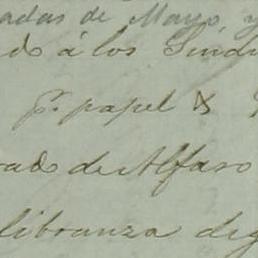 adas de Mayo, y
do á los Síndi
pr. papel &
rado de Alfaro
libranza de